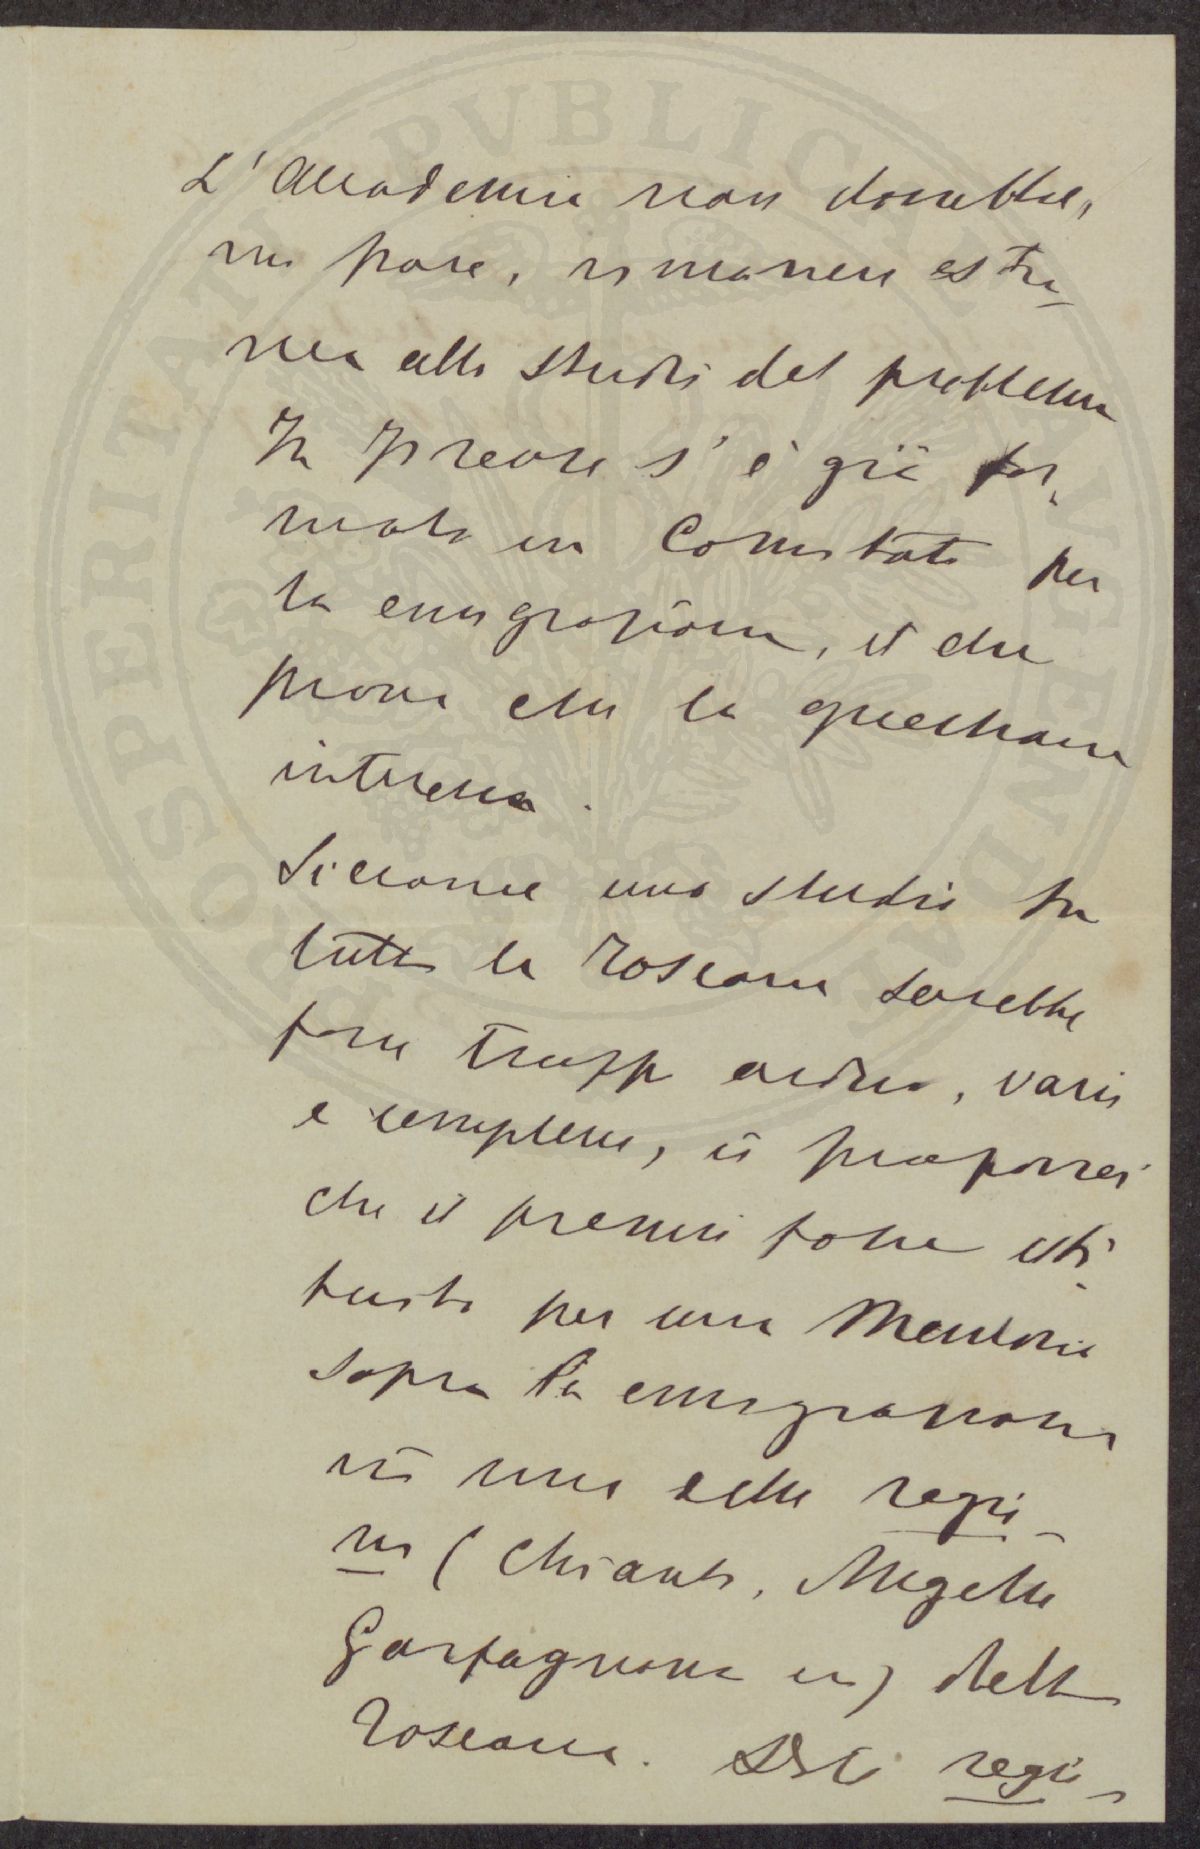 L'Accademia non dovrebbe,
mi pare, rimanere estra-
nea allo studio del problema
In Firenze s'è già for-
mato un Comitato per
la emigrazione, il che
prova che la questione
interessa.
Siccome uno studio su
tutta la Toscana sarebbe
forse troppo arduo, vario
e complesso, io proporrei
che il premio fosse isti-
tuito per una Memoria
sopra la emigrazione
in una delle regio-
ni (Chianti, Mugello
Garfagnana ec) della
Toscana. regio-
PROSPERITATI PVBLICAE AVGENDAE